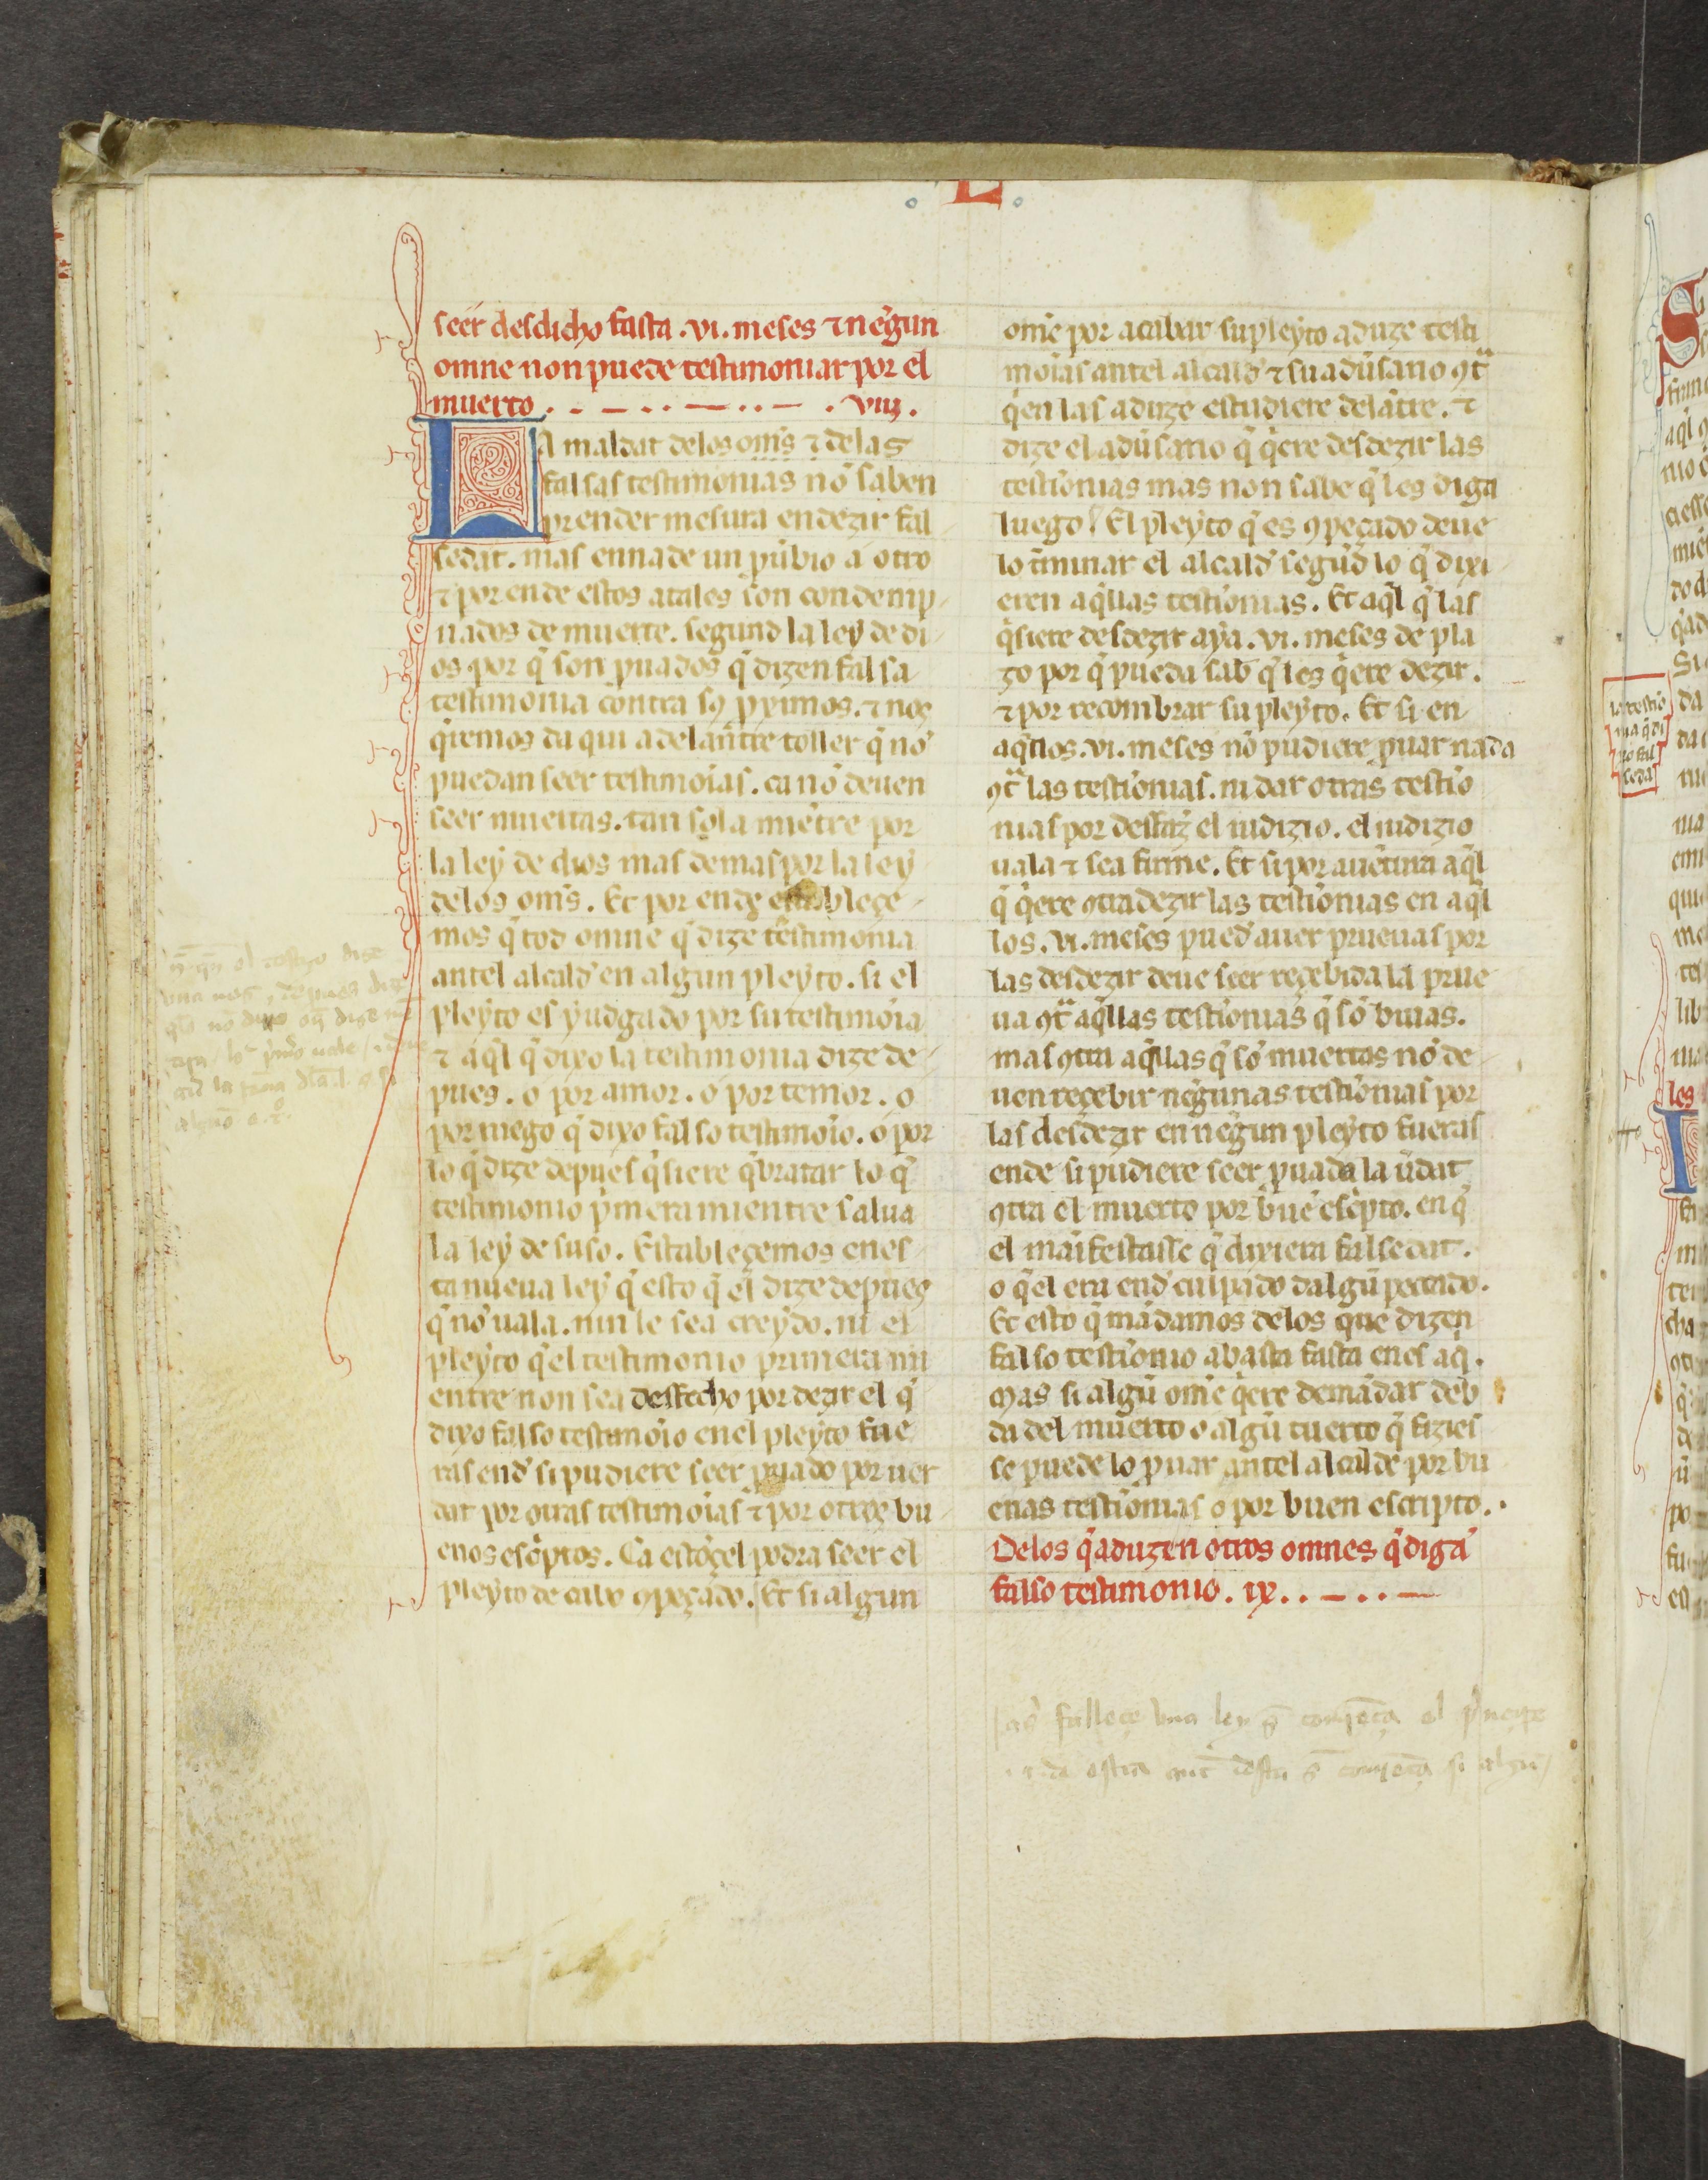 L
seer desdicho fasta .vi. meses ⁊ negun
omne non puede testimoniar por el
muerto . viij.
LA maldat delos om̃s ⁊ delas
falsas testimonias nõ saben
prender mesura en dezir fal
sedat. mas ennade un pũbio a otro
⁊ por ende estos atales son condemp
nados de muerte. segund la ley de di
os por q̃ son puados q̃ dizen falsa
testimonia contra sꝯ pximos. ⁊ nos
q̃remos da qui adelantre toller q̃ nõ
puedan seer testimoĩas. ca nõ deuen
seer muertas. tan sola miẽtre por
la ley de dios mas demas por la ley
delos om̃s. Et por ende estableçe
mos q̃ tod omne q̃ dize testimonia
antel alcald̃ en algun pleyto. si el
pleyto es yudgado por su testimoĩa
⁊ aq̃l q̃ dixo la testimonia dize de
pues. o por amor. o por temor. o
por ruego q̃ dixo falso testimoĩo. o por
lo q̃ dize depues q̃siere q̃bratar lo q̃
testimonio p̃mera mientre salua
la ley de suso. Estableçemos en es
ta nueua ley q̃ esto q̃ el dize depues
q̃ nõ uala. nin le sea creydo. ni el
pleyto q̃l testimonio primera mi
entre non sea desfecho por dezir el q̃
dixo falso testimoĩo en el pleyto fue
ras end̃ si pudiere seer puado por uer
dat por otras testimoĩas ⁊ por otros bu
enos esc̃ptos. Ca estõçel podra seer el
pleyto de cabo ꝯpeçado. Et si algun
om̃e por acabar su pleyto aduze testi
moĩas antel alcald̃ ⁊ su adũsario ꝯt̃
q̃en las aduze estudiere delãtre. ⁊
dize el adũsario q̃ q̃ere desdezir las
testiõnias mas non sabe q̃ les diga
luego. El pleyto q̃ es ꝯpeçado deue
lo t̃minar el alcald̃ segũd lo q̃ dixi
eren aq̃llas testiõnias. Et aq̃l q̃ las
q̃siere desdezir aya .vi. meses de pla
zo por q̃ pueda sab̃ q̃ les q̃ere dezir.
⁊ por recombrar su pleyto. Et si en
aq̃llos .vi. meses nõ pudiere puar nada
ꝯt̃ las testiõnias. ni dar otras testiõ
nias por desfaz̃ el iudizio. el iudizio
uala ⁊ sea firme. Et si por auẽtura aq̃l
q̃ q̃ere ꝯtradezir las testiõnias en aq̃l
los .vi. meses pued̃ auer prueuas por
las desdezir deue seer reçebida la prue
ua ꝯt̃ aq̃llas testiõnias q̃ sõ biuas.
mas ꝯtra aq̃llas q̃ sõ muertas nõ de
uen reçebir negunas testiõnias por
las desdezir en negun pleyto fueras
ende si pudiere seer puada la ũdat
ꝯtra el muerto por buẽ esc̃pto. en q̃
el maĩfestasse q̃ dixiera falsedat.
o q̃ el era end̃ culpado dalgũ peccado.
Et esto q̃ mãdamos delos que dizen
falso testiõnio abasta fasta enes aq̃.
Mas si algũ om̃e q̃ere demãdar deb
da del muerto o algũ tuerto q̃ fizies
se puede lo puar antel alcalde por bu
enas testiõnias o por buen escripto.
Delos q̃ aduzen otros omnes q̃ digã
falso testimonio. ix.
falleçe una ley